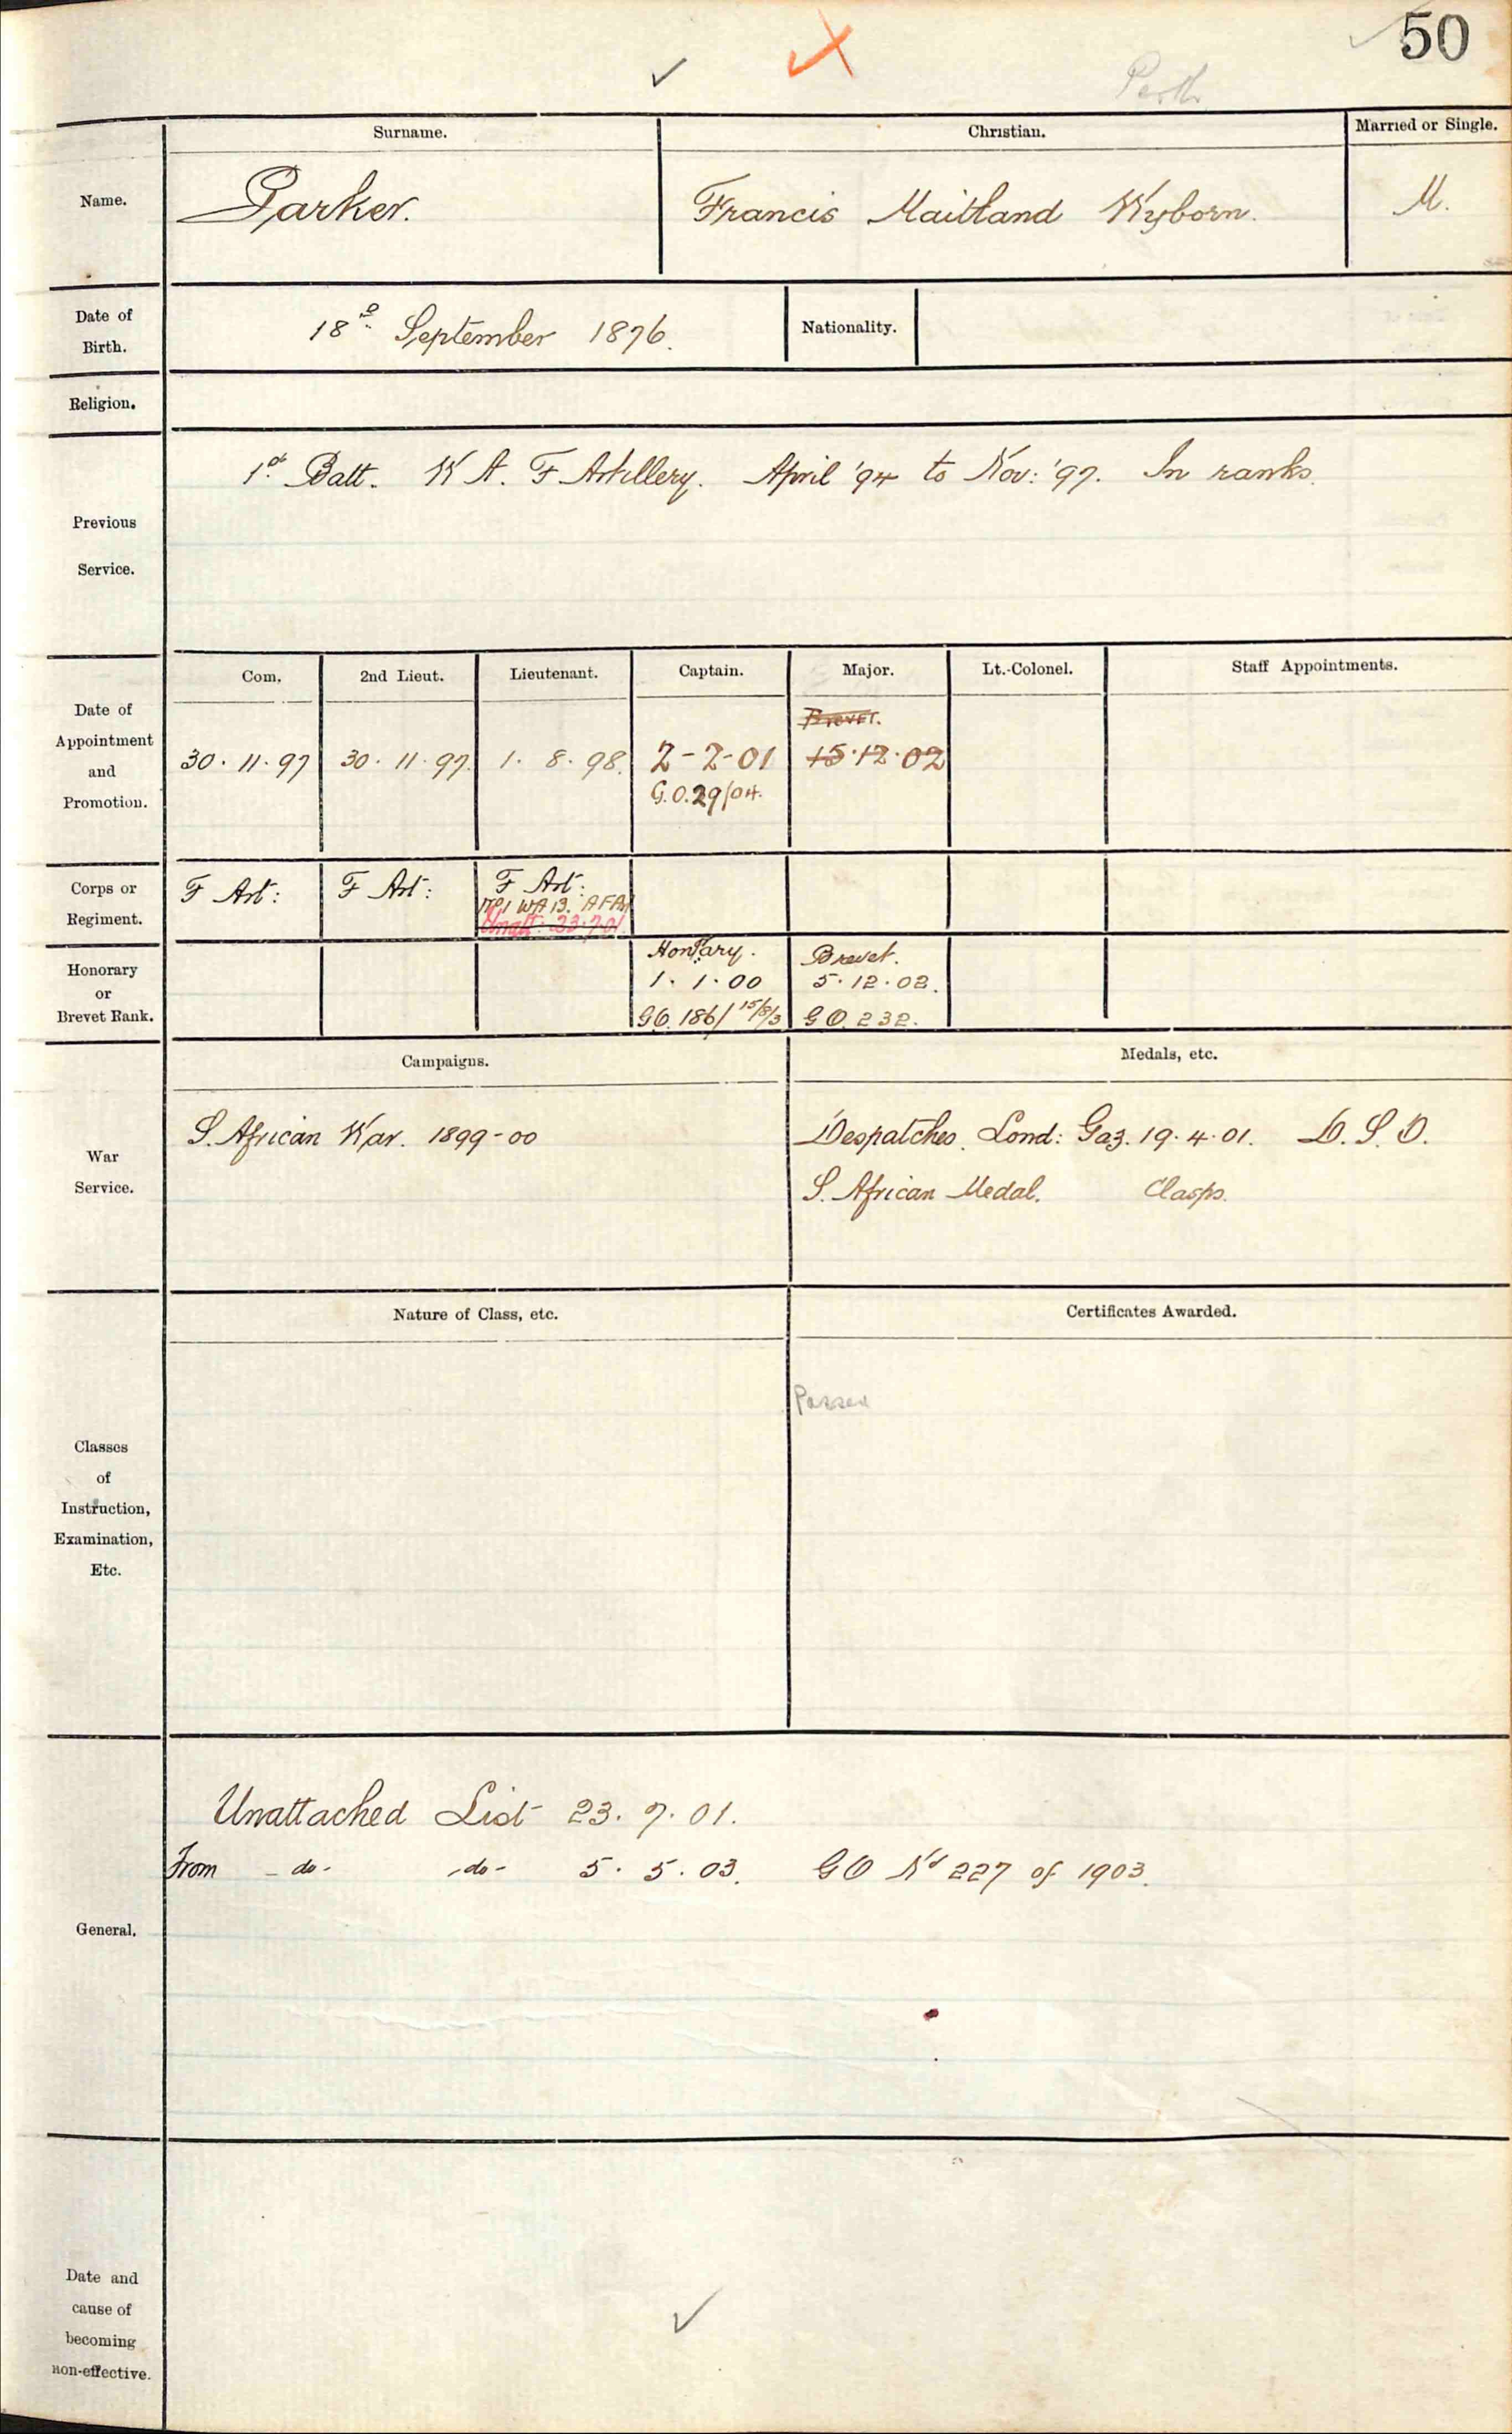 50
Perth
Surname. Christian. Married or Single.
Name. Parker. Francis Maitland Wyborn. M.
Date of Birth. 18th September 1876. Nationality.
Religion.
1st Batt. W A. F Artillery. April '94 to Nov: '97. In ranks.
Previous
Service.
Com. 2nd Lieut. Lieutenant. Captain. Major. Lt.-Colonel. Staff Appointments.
Date of
Appointment
and
Promotion.
Brevet.
30. 11. 97 30. 11. 97. 1. 8. 98. 2-2-01 15.12.02
G.O. 29/04.
Corps or
Regiment.
F Art: F Art: F Art:
No 1 WA B. AFA
Unatt: 23.7.01
Honorary
or
Brevet Rank.
Hon:ary. Brevet.
1. 1. 00 5. 12. 02.
G.O. 186/15/8/3 G O. 232.
Campaigns. Medals, etc.
War
Service.
S. African War. 1899-00 Despatches. Lond: Gaz. 19. 4. 01. D. S. O.
S. African Medal. Clasps.
Nature of Class, etc. Certificates Awarded.
Passed
Classes
of
Instruction,
Examination,
Etc.
Unattached List 23. 7. 01.
From -do- -do- 5. 5. 03. G O No 227 of 1903.
General.
Date and
cause of
becoming
non-effective.